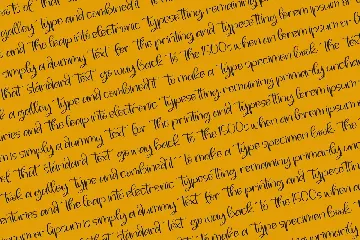 of that
galley type and combined it
and the leap into electronic typesetting remaining
simply a dummy text for the printing and typesetting lorem ipsum
that standard text go way back to the 1500s when an lorem ipsum
a galley type and combined it to make a type specimen book the text
and the leap into electronic typesetting remaining primarily
simply a dummy text for the printing and typesetting lorem ipsum
that standard text go way back to the 1500s when an lorem ipsum
took a galley type and combined it to make a type specimen book the
centuries and the leap into electronic typesetting remaining primarily
ipsum is simply a dummy text for the printing and
text go way back to the 1500s when
to make a type specimen book
primarily